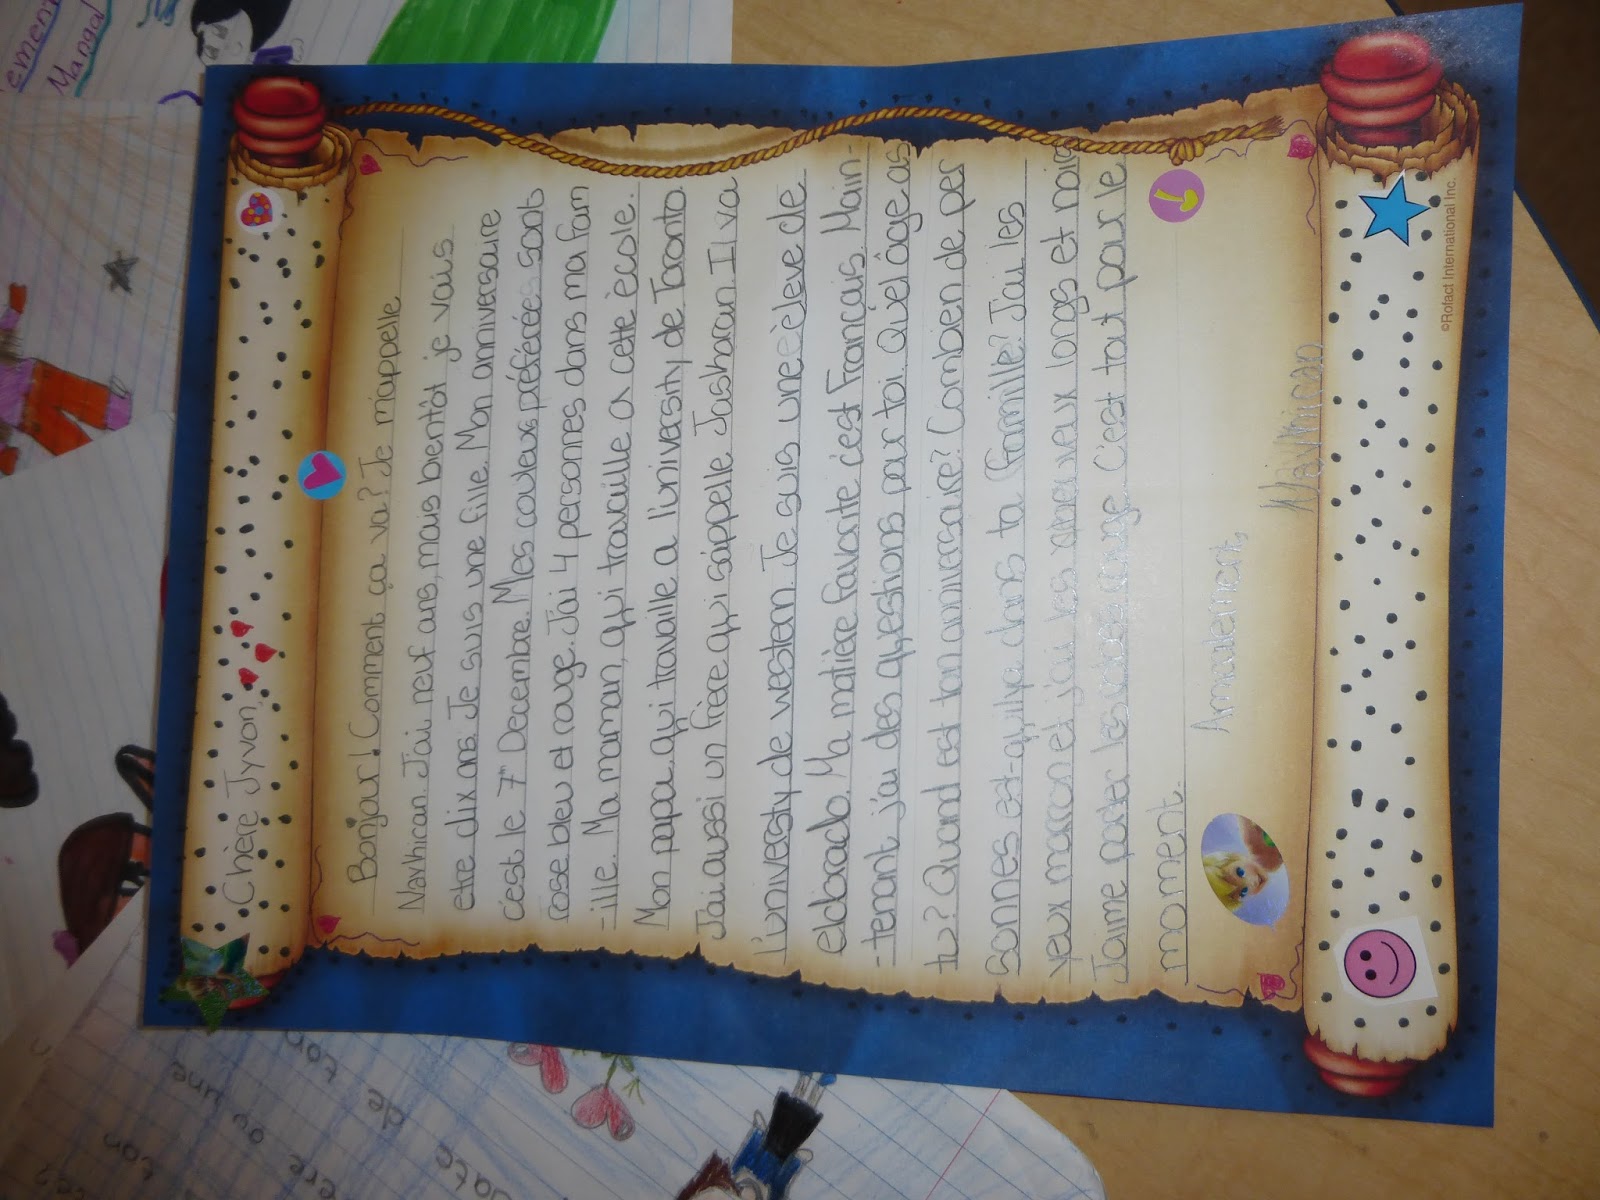 Chère Jyvon,
Bonjour! Comment ça va? Je m'appelle
Navkiran. J'ai neuf ans, mais bientôt je vais
etre dix ans. Je suis une fille. Mon anniversaire
c'est le 7 Decembre. Mes couleurs préférées sont
rose bleu et rouge. J'ai 4 personnes dans ma fam
-ille. Ma maman, qui travaille a cette école.
Mon papa, qui travaille a l'univesity de Toronto.
J'ai aussi un frère qui s'appelle Jasharan. Il va
l'univesty de western. Je suis une élève de
eldorado. Ma matière favorite c'est Francais. Main-
-tenant j'ai des questions pour toi. Qu'el âge as
tu? Quand est ton anniversaire? Combien de per
sonnes est-qu'ilya dans ta famille? J'ai les
yeux marron et j'ai les cheveux longs et noir
J'aime porter les robes C'est tout pour le
moment.
Amicalement,
Navkiran
©Rofact International Inc.
ement
Manga
ton
de
date
ou une
ère
ton